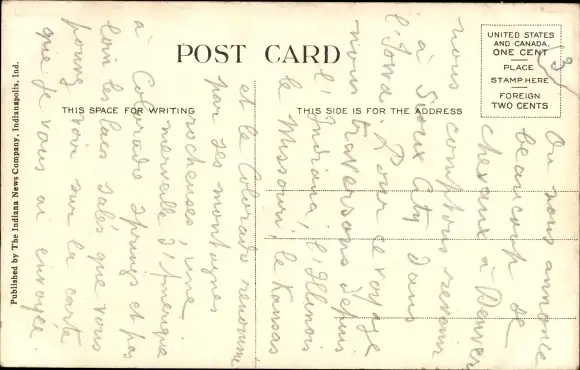 POST CARD
THIS SPACE FOR WRITING
THIS SIDE IS FOR THE ADDRESS
UNITED STATES
AND CANADA.
ONE CENT
PLACE
STAMP HERE
FOREIGN
TWO CENTS
Published by The Indiana News Company, Indianapolis, Ind.
3
On nous annonce
beaucoup de
chevaux à Denver
nous comptons revenir
à Sioux City dans
l'Iowa. Pour ce voyage
nous traversons depuis
l'Indiana, l'Illinois
le Missouri, le Kansas
et le Colorado renommé
par ses montagnes
rocheuses, une
merveille d'Amérique
à Colorado Springs et pas
loin les lacs salés que vous
pouvez voir sur la carte
que je vous ai envoyée.